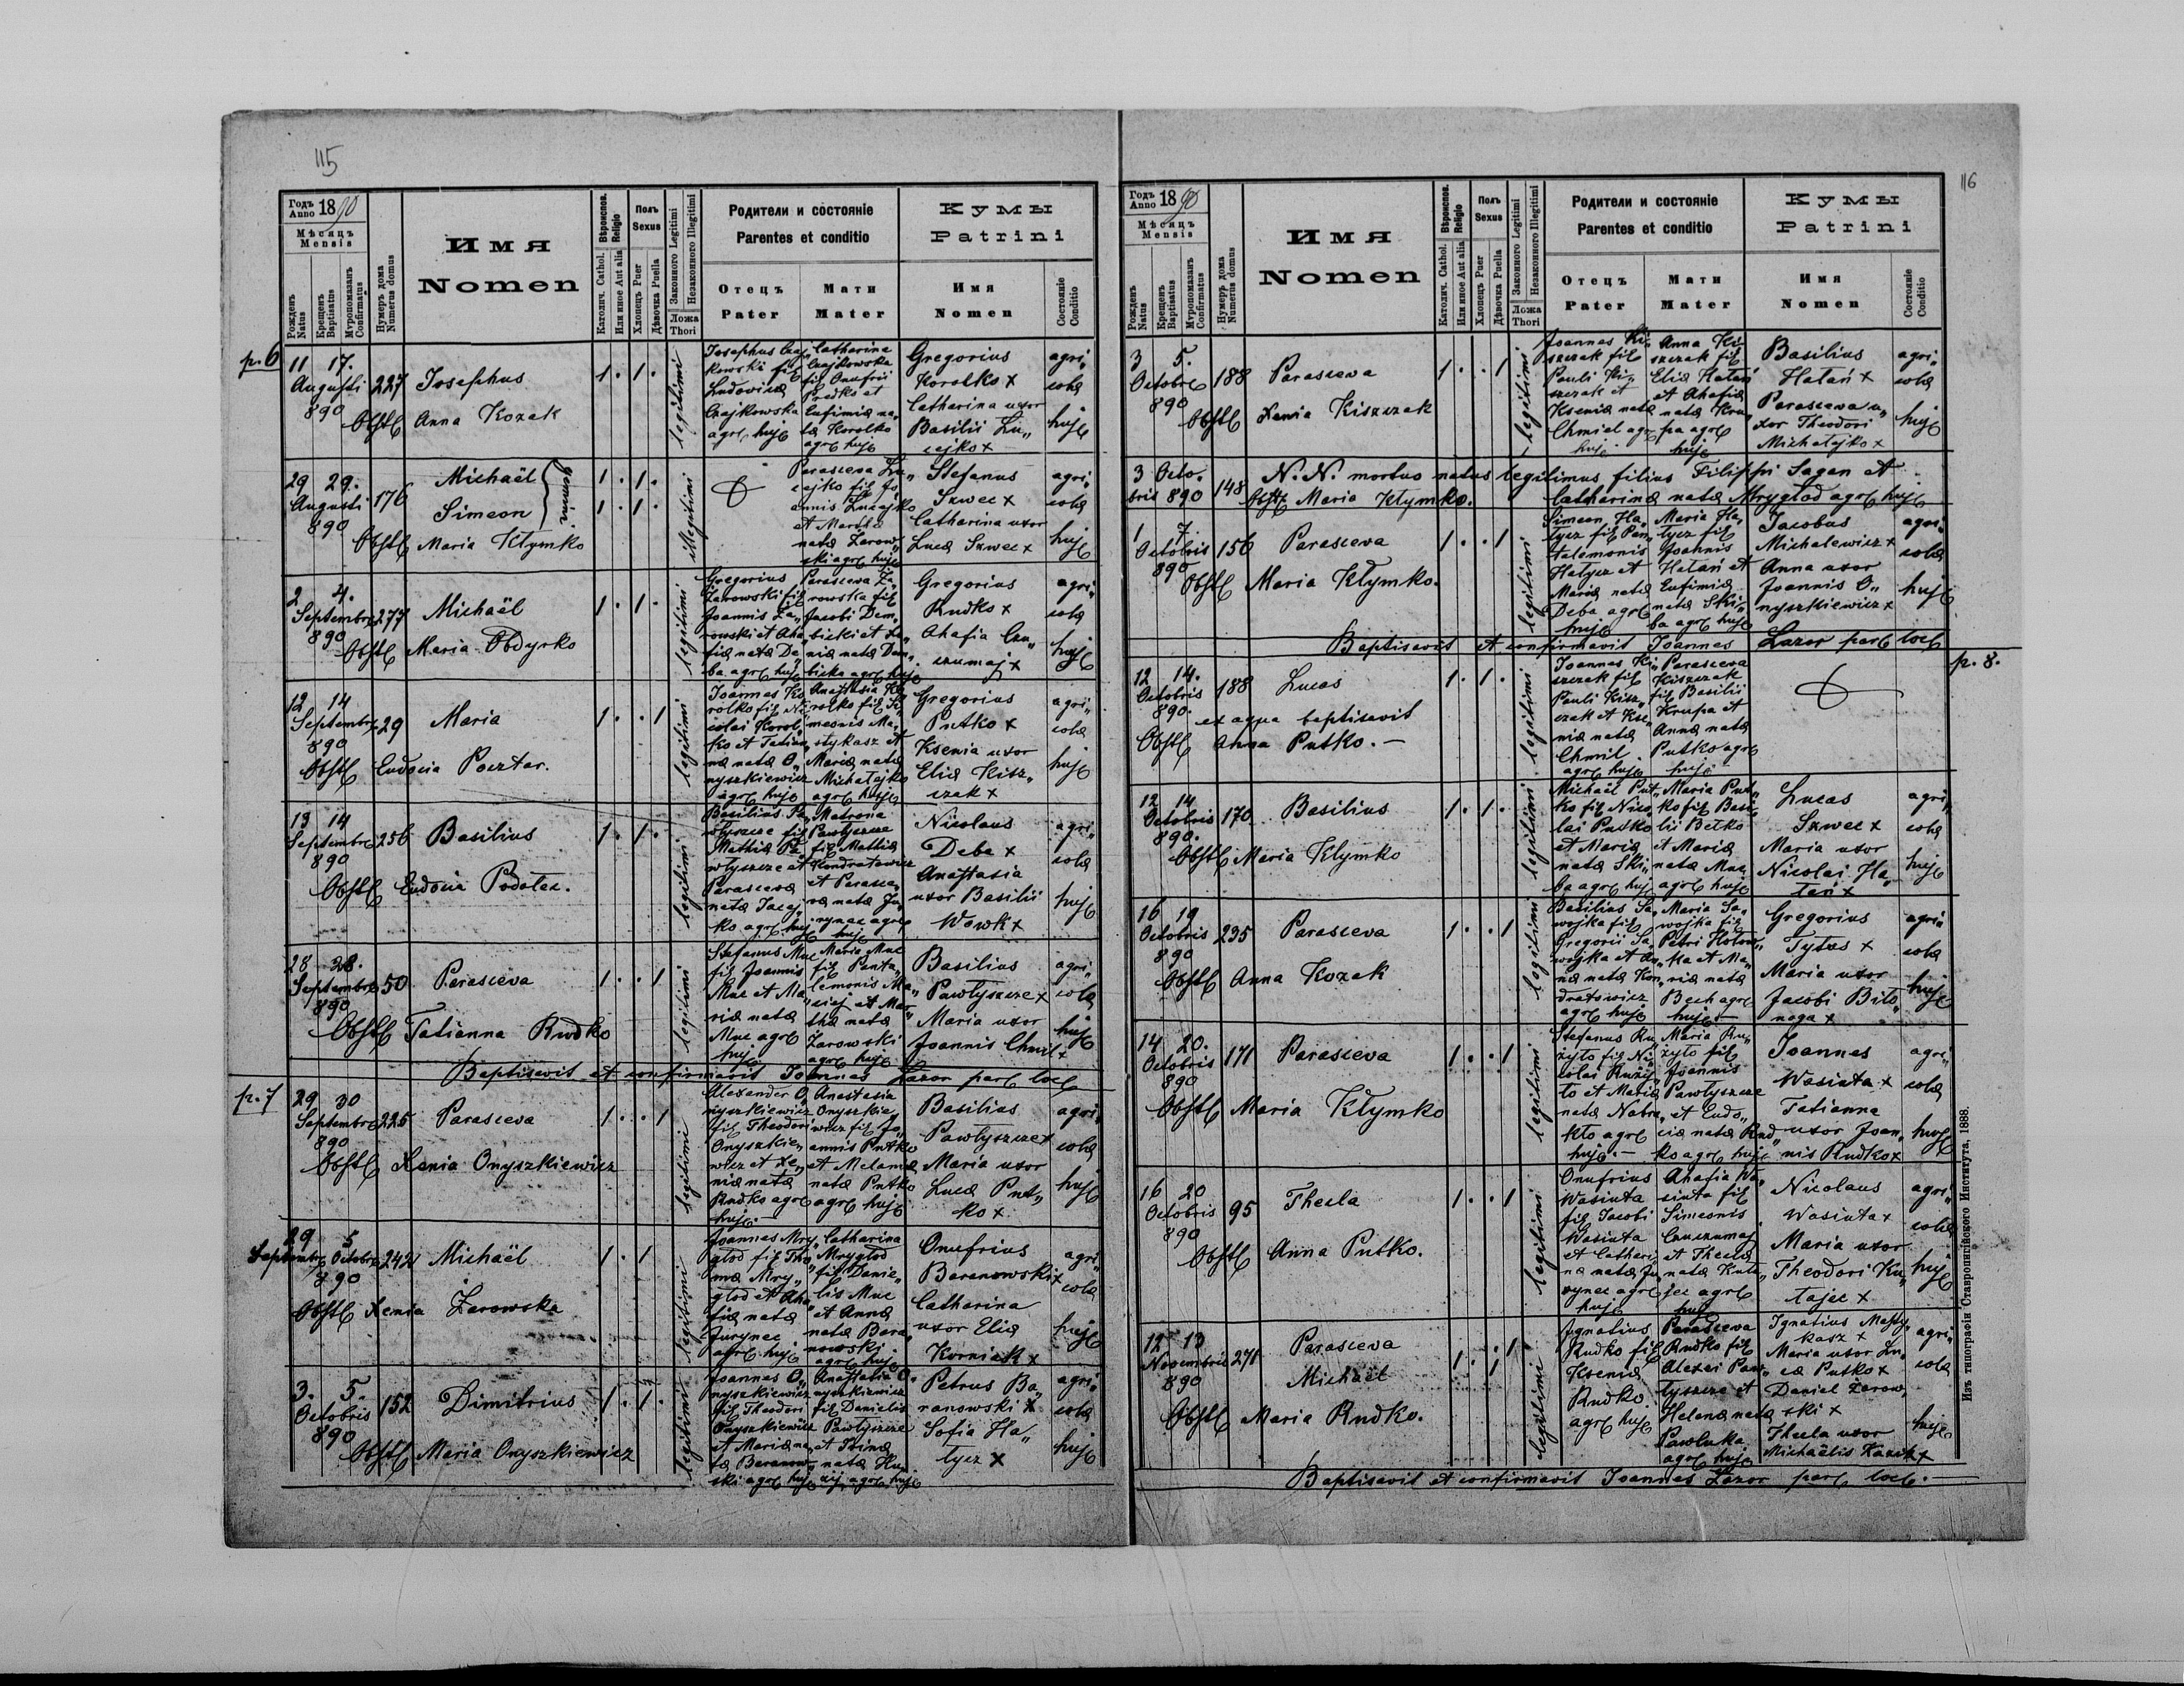 115
Годъ Anno 1890
Мѣсяцъ Mensis
Рожденъ Natus
Крещенъ Baptisatus
Мѵропомазанъ Confirmatus
Нумеръ дома Numerus domus
Имя
Nomen
Вѣроиспов. Religio
Католич. Cathol.
Или иное Aut alia
Полъ Sexus
Хлопецъ Puer
Дѣвочка Puella
Законного Legitimi
Незаконного Illegitimi
Ложа Thori
Родители и состоянie
Parentes et conditio
Отецъ
Pater
Мати
Mater
Кумы
Patrini
Имя
Nomen
Состоянie
Conditio
p. 6
11 17.
Augusti 227 Josephus 1. 1.
890
Obst Anna Kozak
legitimi
Josephus Czaj„
kowski fil
Ludovica
Czajkowska
agr huj
Catharina
Czajkowska
fil Onufrii
Predko et
Eufimia na„
ta Korolko
agr huj
Gregorius
Korolko x
Catharina uxor
Basilii Lu„
cejko x
agri„
cola
huj
29 29.
Augusti 176 Michaël 1. 1.
890 Simeon 1. 1.
gemini
Obst Maria Kłymko
illegitimi
Parasceva Lu„
cejko fil Jo„
annis Łucejko
et Martha
nata Zarow„
ski agr huj
Stefanus
Szwec x
Catharina uxor
Luca Szwec x
agri„
cola
huj
2 4.
Septembr 277 Michaël 1. 1.
890
Obst Maria Obdyrko
legitimi
Gregorius
Żarowski fil
Joannis Ża„
rowski et Aha„
fia nata De„
ba agr huj
Parasceva Ża„
rowska fil
Jacobi Dem„
bicki et Xe„
nia nata Dem„
bicka agr huj
Gregorius
Rudko x
Ahafia Czu„
czumaj x
agri„
cola
huj
12 14
Septembr 29 Maria 1. . 1
890
Obst Eudocia Pocztar.
legitimi
Joannes Ko„
rolko fil Ni„
colai Korol„
ko et Tatian„
na nata O„
nyszkiewicz
agr huj
Anastasia Ko„
rolko fil Si„
meonis Ma„
stykasz et
Maria nata
Michałajko
agr huj
Gregorius
Putko x
Ksenia uxor
Elia Kisz„
czak x
agri„
cola
huj
13 14
Septembr 256 Basilius 1. 1.
890
Obst Eudocia Podolec.
legitimi
Basilius Pa„
włyszcze fil
Mathia Pa„
włyszcze et
Parasceva
nata Jacej„
ko agr huj
Matrona
Pawłyszcze
fil Mathia
Kondratowicz
et Parasce„
va nata Ju„
rynec agr
huj
Nicolaus
Deba x
Anastasia
uxor Basilii
Wowk x
agri„
cola
huj
28 28.
Septembr 50 Parasceva 1. . 1
890
Obst Tatianna Rudko
legitimi
Stefanus Muc
fil Joannis
Muc et Ma„
ria nata
Muc agr
huj
Maria Muc
fil Panta„
lemonis Ma„
ciej et Mar„
tha nata
Żarowski
agr huj
Basilius
Pawłyszcze x
Maria uxor
Joannis Chmil x
agri„
cola
huj
Baptisavit et confirmavit Joannes Lazor par loc
p. 7
29 30
Septembr 225 Parasceva 1. . 1
890
Obst Xenia Onyszkiewicz
legitimi
Alexander O„
nyszkiewicz
fil Theodori
Onyszkie„
wicz et Xe„
nia nata
Rudko agr
huj.
Anastasia
Onyszkie„
wicz fil Jo„
annis Putko
et Melania
nata Putko
agr huj
Basilius
Pawłyszcze x
Maria uxor
Luca Put„
ko x
agri„
cola
huj
29 5
Septembr Octobr 242 Michaël 1. 1
890
Obst Xenia Żarowska
legitimi
Joannes Mry„
glod fil Tho„
ma Mry„
glod et Aha„
fia nata
Jurynec
agr huj
Catharina
Mryglod
fil Danie„
lis Muc
et Anna
nata Bara„
nowski
agr huj
Onufrius
Baranowski x
Catharina
uxor Elia
Korniak x
agri„
cola
huj
3. 5.
Octobris 152 Dimitrius 1. 1.
890
Obst Maria Onyszkiewicz
legitimi
Joannes O„
nyszkiewicz
fil Theodori
Onyszkiewicz
et Maria na„
ta Baranow„
ski agr huj
Anastasia O„
nyszkiewicz
fil Danielis
Pawłyszcze
et Irina
nata Hu„
zij agr huj
Petrus Ba„
ranowski x
Sofia Ha„
tycz x
agri„
cola
huj
116
Годъ Anno 1890
Мѣсяцъ Mensis
Рожденъ Natus
Крещенъ Baptisatus
Мѵропомазанъ Confirmatus
Нумеръ дома Numerus domus
Имя
Nomen
Вѣроиспов. Religio
Католич. Cathol.
Или иное Aut alia
Полъ Sexus
Хлопецъ Puer
Дѣвочка Puella
Законного Legitimi
Незаконного Illegitimi
Ложа Thori
Родители и состоянie
Parentes et conditio
Отецъ
Pater
Мати
Mater
Кумы
Patrini
Имя
Nomen
Состоянie
Conditio
3 5.
Octobr 188 Parasceva 1. . 1
890
Obst Xenia Kiszczak
legitimi
Joannes Ki„
szczak fil
Pauli Ki„
szczak et
Ksenia nata
Chmiel agr
huj
Anna Ki„
szczak fil
Elia Hatań
et Ahafia
nata Kru„
pa agr
huj
Basilius
Hatań x
Parasceva u„
xor Theodori
Michałajko x
agri„
cola
huj
3 Octo„
bris 890 148 N. N. mortuo natus legitimus filius Filippi Sagan et
Obst Maria Kłymko. Catharina nata Mryglod agr huj
1 7.
Octobris 156 Parasceva 1. . 1
890
Obst Maria Kłymko.
legitimi
Simeon Ha„
tycz fil Pan„
talemonis
Hatycz et
Maria nata
Deba agr
huj
Maria Ha„
tycz fil
Joannis
Hatań et
Eufimia
nata Ski„
ba agr huj
Jacobus
Michalewicz x
Anna uxor
Joannis O„
nyszkiewicz x
agri„
cola
huj
Baptisavit et confirmavit Joannes Lazor par loc
p. 8.
12 14.
Octobris 188 Lucas 1. 1.
890.
ex aqua baptisavit
Obst Anna Putko. —
legitimi
Joannes Ki„
szczak fil
Pauli Kisz„
czak et Kse„
nia nata
Chmil.
agr huj
Parasceva
Kiszczak
fil Basilii
Krupa et
Anna nata
Putko agr
huj
12 14
Octobris 170 Basilius 1. 1.
890.
Obst Maria Kłymko
legitimi
Michaël Put„
ko fil Nico„
lai Putko
et Maria
nata Ski„
ba agr huj
Maria Put„
ko fil Basi„
lii Betko
et Maria
nata Muc
agr huj
Lucas
Szwec x
Maria uxor
Nicolai Ha„
tań x
agri„
cola
huj
16 19
Octobris 235 Parasceva 1. . 1
890
Obst Anna Kozak
legitimi
Basilius Sa„
wojka fil
Gregorii Sa„
wojka et An„
na nata Kon„
dratowicz
agr huj
Maria Sa„
wojka fil
Petri Hotow„
ka et Ma„
ria nata
Bech agr
huj.
Gregorius
Tytas x
Maria uxor
Jacobi Bito„
naga x
agri„
cola
huj
14 20.
Octobris 171 Parasceva 1. . 1
890
Obst Maria Kłymko
legitimi
Stefanus Ru„
żyto fil Ni„
colai Ruży„
to et Maria
nata Natra„
kto agr
huj. —
Maria Ru„
żyto fil
Joannis
Pawłyszcze
et Eudo„
cia nata Rud„
ko agr huj
Joannes
Wasiuta x
Tatianna
uxor Joan„
nis Rudko x
agri„
cola
huj
16 20
Octobris 95 Thecla 1. . 1
890
Obst Anna Putko.
legitimi
Onufrius
Wasiuta
fil Jacobi
Wasiuta
et Catheri„
na nata Ju„
rynec agr
huj
Ahafia Wa„
siuta fil
Simeonis
Czuczumaj
et Thecla
nata Kuta„
jec agr
huj
Nicolaus
Wasiuta x
Maria uxor
Theodori Ku„
tajec x
agri„
cola
huj
12 13
Novembris 271 Parasceva . 1
890 Michaël 1.
Obst Maria Rudko.
legitimi
Ignatius
Rudko fil
Ksenia
Rudko.
agr huj
Parasceva
Rudko fil
Alexei Paw„
łyszcze et
Helena nata
Pawluka
agr huj
Ignatius Masty„
kasz x
Maria uxor Lu„
ca Putko x
Daniel Żarow„
ski x
Thecla uxor
Michaëlis Kazik x
agri„
cola
huj
Baptisavit et confirmavit Joannes Lazor par loc.
Изъ типографiи Ставропигiйского Института, 1888.